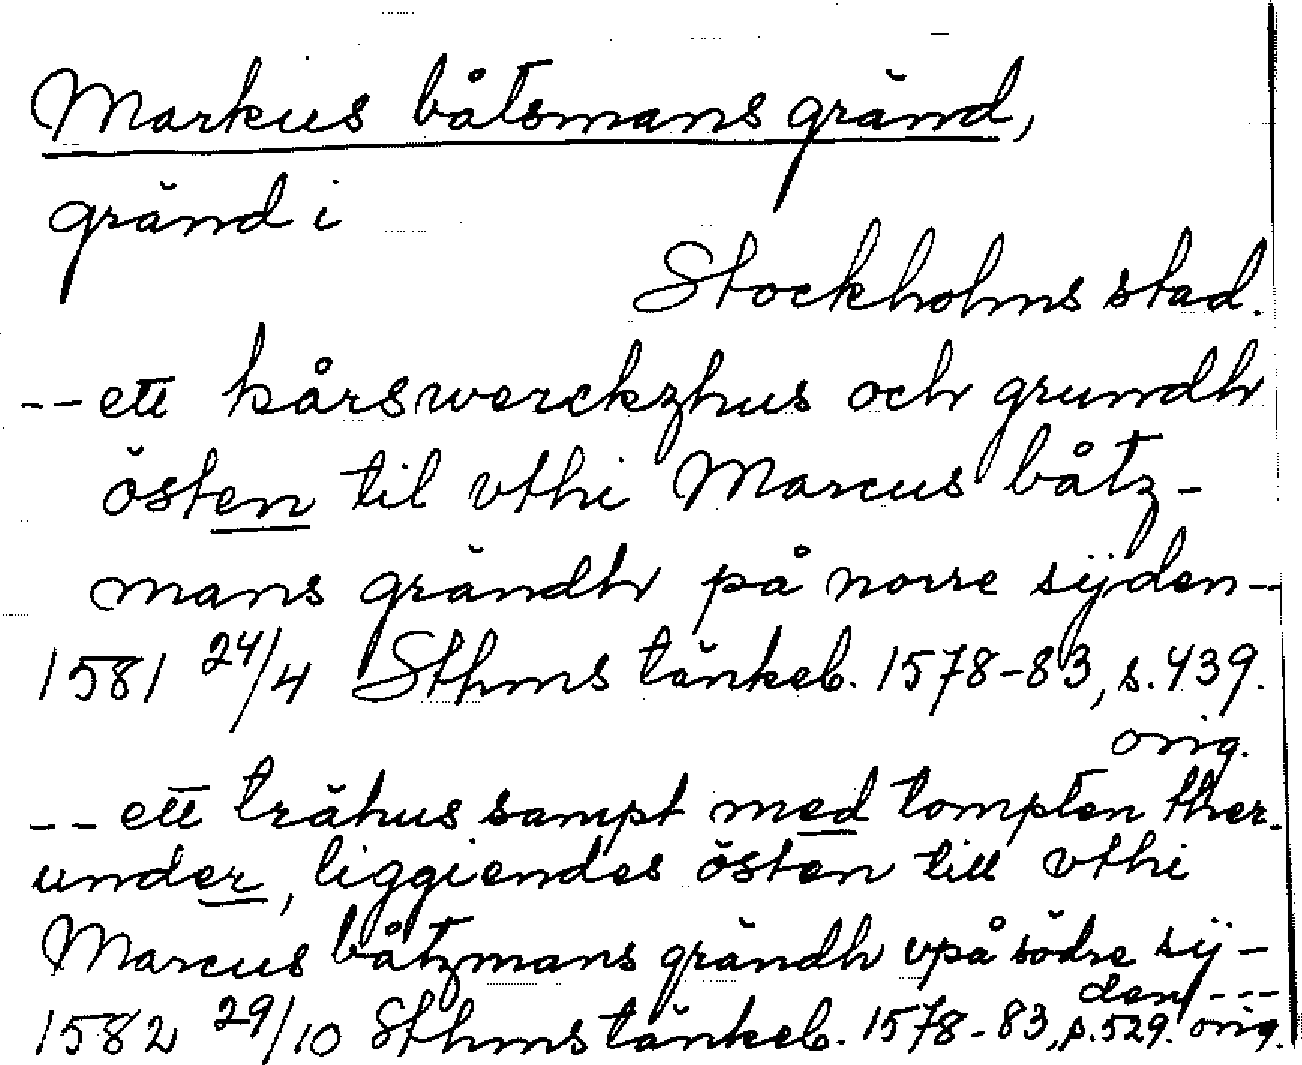 Markus båtsmans gränd,
gränd i
Stockholms stad.
-- ett kårswerckzhus och grundh
östen til vthi Marcus båtz-
mans grändh på norre sijden--
1581 24/4 Sthms tänkeb. 1578-83, s. 439.
orig.
-- ett trähus sampt med tompten ther-
under, liggiendes östen till vthi
Marcus båtzmans grändh vpå södre sij-
den ---
1582 29/10 Sthms tänkeb. 1578-83, s. 529. orig.